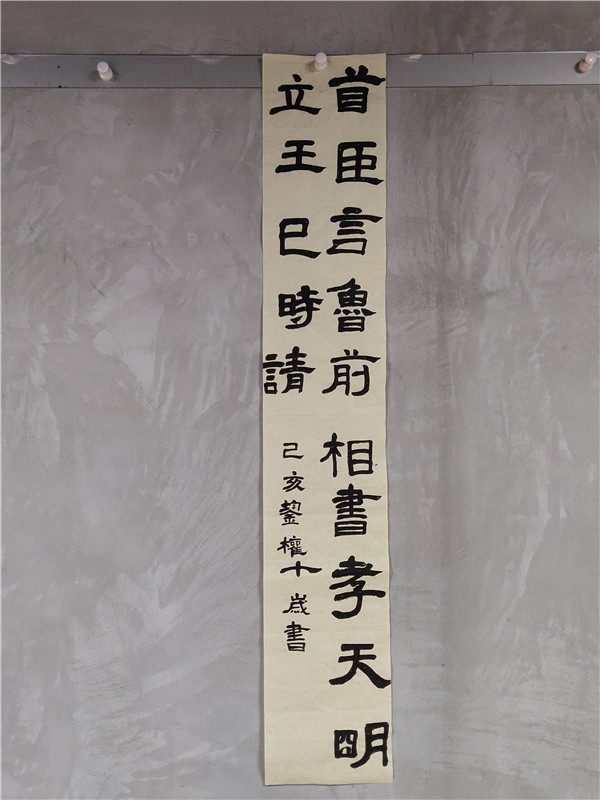 首臣言魯前相書孝天明
立王巳時請
己亥權十歲書